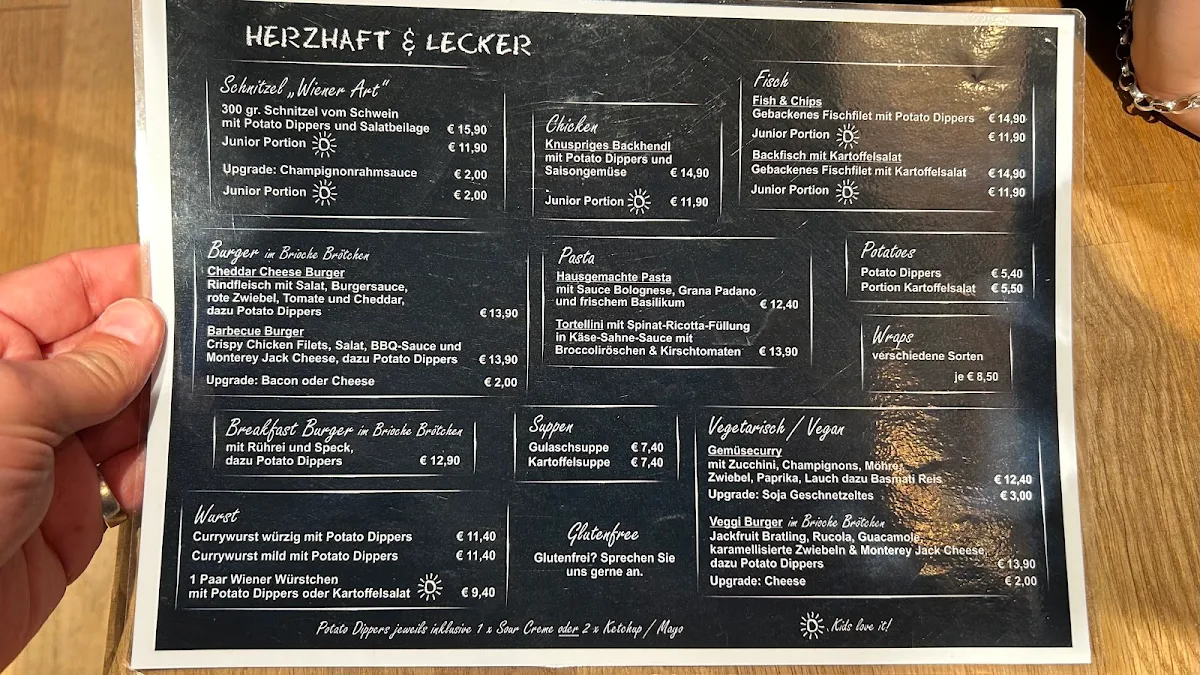 HERZHAFT & LECKER
Schnitzel „Wiener Art“
300 gr. Schnitzel vom Schwein
mit Potato Dippers und Salatbeilage € 15,90
Junior Portion € 11,90
Upgrade: Champignonrahmsauce € 2,00
Junior Portion € 2,00
Chicken
Knuspriges Backhendl
mit Potato Dippers und
Saisongemüse € 14,90
Junior Portion € 11,90
Fisch
Fish & Chips
Gebackenes Fischfilet mit Potato Dippers € 14,90
Junior Portion € 11,90
Backfisch mit Kartoffelsalat
Gebackenes Fischfilet mit Kartoffelsalat € 14,90
Junior Portion € 11,90
Burger im Brioche Brötchen
Cheddar Cheese Burger
Rindfleisch mit Salat, Burgersauce,
rote Zwiebel, Tomate und Cheddar,
dazu Potato Dippers € 13,90
Barbecue Burger
Crispy Chicken Filets, Salat, BBQ-Sauce und
Monterey Jack Cheese, dazu Potato Dippers € 13,90
Upgrade: Bacon oder Cheese € 2,00
Pasta
Hausgemachte Pasta
mit Sauce Bolognese, Grana Padano
und frischem Basilikum € 12,40
Tortellini mit Spinat-Ricotta-Füllung
in Käse-Sahne-Sauce mit
Broccoliröschen & Kirschtomaten € 13,90
Potatoes
Potato Dippers € 5,40
Portion Kartoffelsalat € 5,50
Wraps
verschiedene Sorten
je € 8,50
Breakfast Burger im Brioche Brötchen
mit Rührei und Speck,
dazu Potato Dippers € 12,90
Suppen
Gulaschsuppe € 7,40
Kartoffelsuppe € 7,40
Vegetarisch / Vegan
Gemüsecurry
mit Zucchini, Champignons, Möhre,
Zwiebel, Paprika, Lauch dazu Basmati Reis € 12,40
Upgrade: Soja Geschnetzeltes € 3,00
Veggi Burger im Brioche Brötchen
Jackfruit Bratling, Rucola, Guacamole,
karamellisierte Zwiebeln & Monterey Jack Cheese,
dazu Potato Dippers € 13,90
Upgrade: Cheese € 2,00
Wurst
Currywurst würzig mit Potato Dippers € 11,40
Currywurst mild mit Potato Dippers € 11,40
1 Paar Wiener Würstchen
mit Potato Dippers oder Kartoffelsalat € 9,40
Glutenfree
Glutenfrei? Sprechen Sie
uns gerne an.
Potato Dippers jeweils inklusive 1 x Sour Creme oder 2 x Ketchup / Mayo
Kids love it!